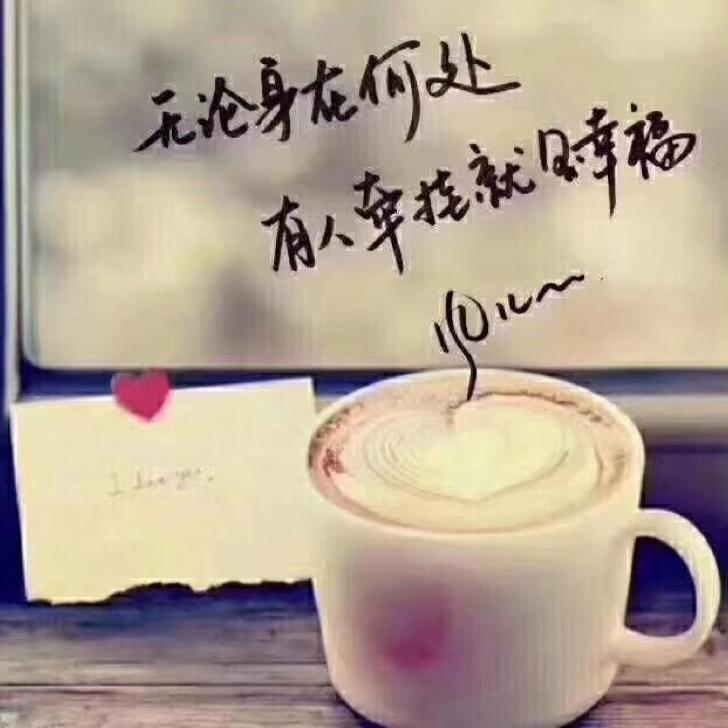 无论身在何处
有人牵挂就是幸福
I love you.